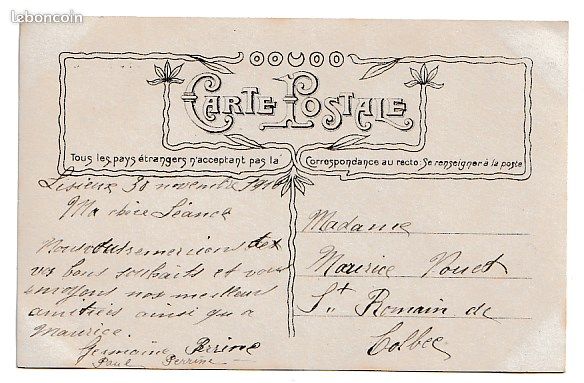 leboncoin
CARTE POSTALE
Tous les pays étrangers n'acceptant pas la Correspondance au recto: Se renseigner à la poste
Lisieux 30 novembre
Ma chère
Nous
vos bons souhaits et vous
envoyons nos meilleurs
amitiées ainsi qu'a
Maurice.
Germaine Perrine
Paul Perrine
Madame
Maurice
St Romain de
Colbec